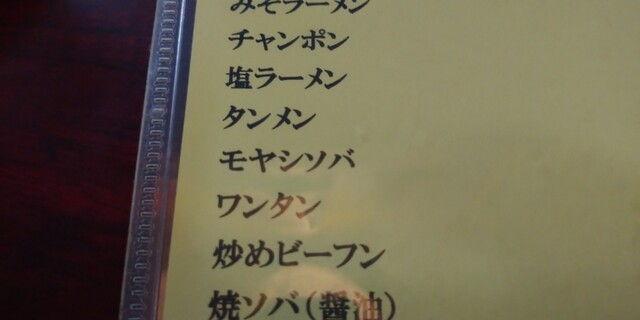 みそラーメン
チャンポン
塩ラーメン
タンメン
モヤシソバ
ワンタン
炒めビーフン
焼ソバ(醤油)